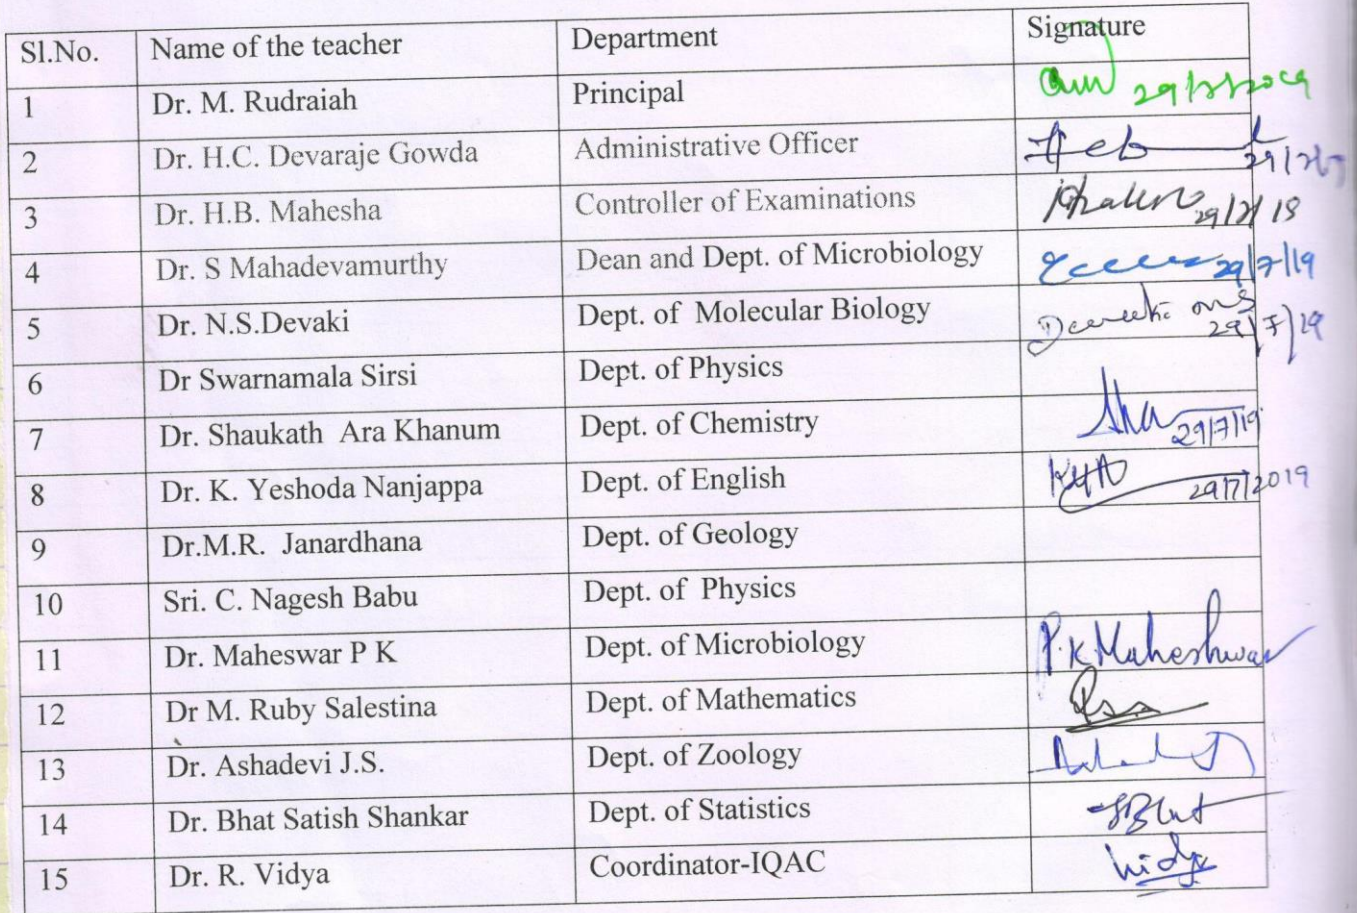 Sl.No. Name of the teacher Department Signature
1 Dr. M. Rudraiah Principal
2 Dr. H.C. Devaraje Gowda Administrative Officer
3 Dr. H.B. Mahesha Controller of Examinations
4 Dr. S Mahadevamurthy Dean and Dept. of Microbiology 29/7/19
5 Dr. N.S.Devaki Dept. of Molecular Biology 29/7/19
6 Dr Swarnamala Sirsi Dept. of Physics
7 Dr. Shaukath Ara Khanum Dept. of Chemistry 29/7/19
8 Dr. K. Yeshoda Nanjappa Dept. of English 29/7/2019
9 Dr.M.R. Janardhana Dept. of Geology
10 Sri. C. Nagesh Babu Dept. of Physics
11 Dr. Maheswar P K Dept. of Microbiology P.K.Maheshwar
12 Dr M. Ruby Salestina Dept. of Mathematics
13 Dr. Ashadevi J.S. Dept. of Zoology
14 Dr. Bhat Satish Shankar Dept. of Statistics SBhat
15 Dr. R. Vidya Coordinator-IQAC Vidya